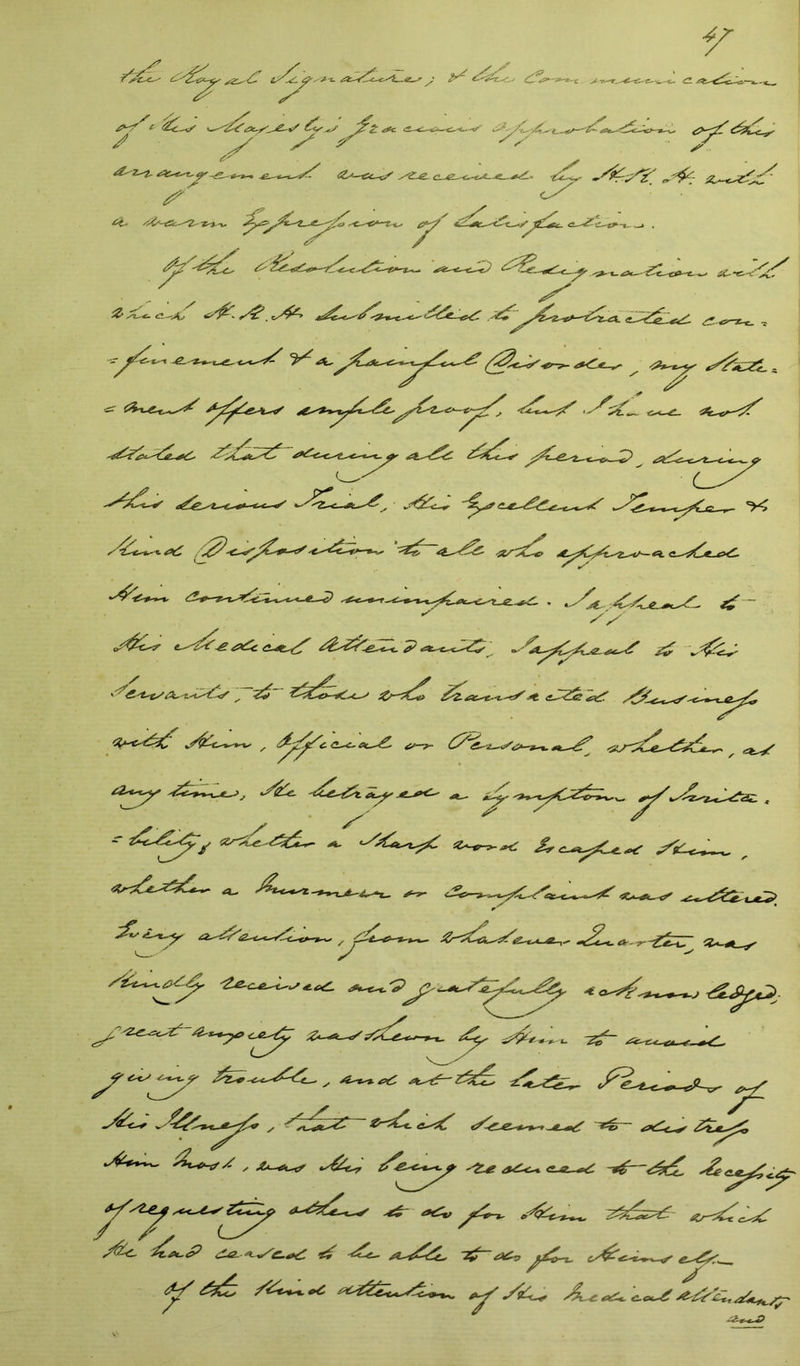 47
the Royal Signature; & the Communication
of this Mark by His approbation of the
arrangement was received by H.R.H. with
a warm Expression of satisfaction.
Of the Resolution and Resignation with
which H.R.H. submitted to protracted con=
=finement & a painful Disorder, my State=
=ment offers ample proof, but I can not
state that during all the period, during
this tedious Trial, His Excellent Temper &
kind Disposition to all who approached
Him continued unimpaired. I appeal to
His Medical Attendants, I appeal to His
Servants, to those who transacted business
with Him, Official or Personal, whether, at
any time, He betrayed a Symptom of Irrita=
=bility; whether a sharp word escaped Him,
whether a murmur or complaint was uttered.
Every attention, from whatever Quarter, was
kindly received and gratefully acknowledged;
great anxiety was shewn by Him to avoid
giving trouble, and at the later Periods of
His Illness, that which seemed to distress
Him most, was His being reduced to the necessity
of requesting others to do for Him that which
He had ceased to be able to do for Himself.
Of the kind attention of His Medical Attendants
and